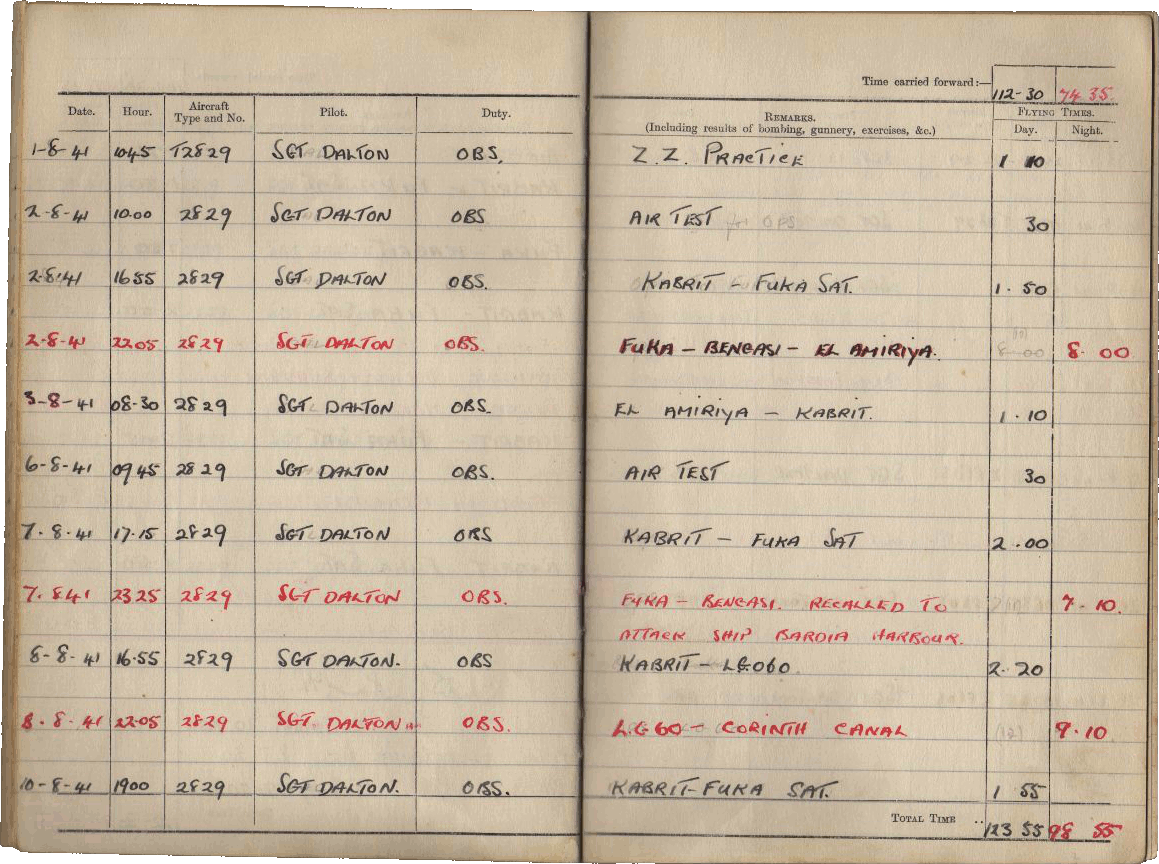 Time carried forward:— 112-30 74 35.
Date. Hour. Aircraft Type and No. Pilot. Duty. REMARKS. (Including results of bombing, gunnery, exercises, &c.) FLYING TIMES. Day. Night.
1-8-41 1045 T2829 SGT DALTON OBS, Z.Z. PRACTICE 1 10
2-8-41 10.00 2829 SGT DALTON OBS AIR TEST 30
2-8-41 1655 2829 SGT DALTON OBS. KABRIT - FUKA SAT. 1. 50
2-8-41 2205 2829 SGT DALTON OBS. FUKA - BENGASI - EL AMIRIYA. 8. 00
3-8-41 08-30 2829 SGT DALTON OBS. EL AMIRIYA - KABRIT. 1.10
6-8-41 0945 2829 SGT DALTON OBS. AIR TEST 30
7.8.41 17.15 2829 SGT DALTON OBS KABRIT - FUKA SAT 2.00
7.8.41 2325 2829 SGT DALTON OBS. FUKA - BENGASI. RECALLED TO 7-10.
ATTACK SHIP BARDIA HARBOUR.
8-8-41 16.55 2829 SGT DALTON. OBS KABRIT - LG060. 2.20
8.8.41 22.05 2829 SGT DALTON OBS. L.G 60 - CORINTH CANAL 9.10
10-8-41 1900 2829 SGT DALTON. OBS. KABRIT-FUKA SAT. 1 55
TOTAL TIME .. 123 55 98 55